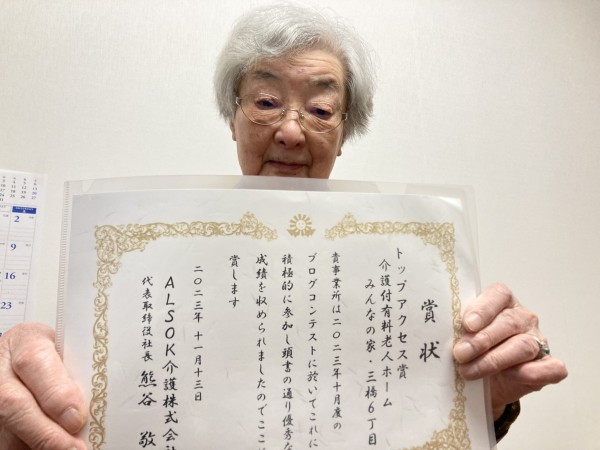 賞状
トップアクセス賞
介護付有料老人ホーム
みんなの家・三橋6丁目
貴事業所は二〇二三年十月度の
ブログコンテストに於いてこれに
積極的に参加し頭書の通り優秀な
成績を収められましたのでここに
賞します
二〇二三年 十一月十三日
ALSOK介護株式会
代表取締役社長 熊谷 敬
2
9
16
23